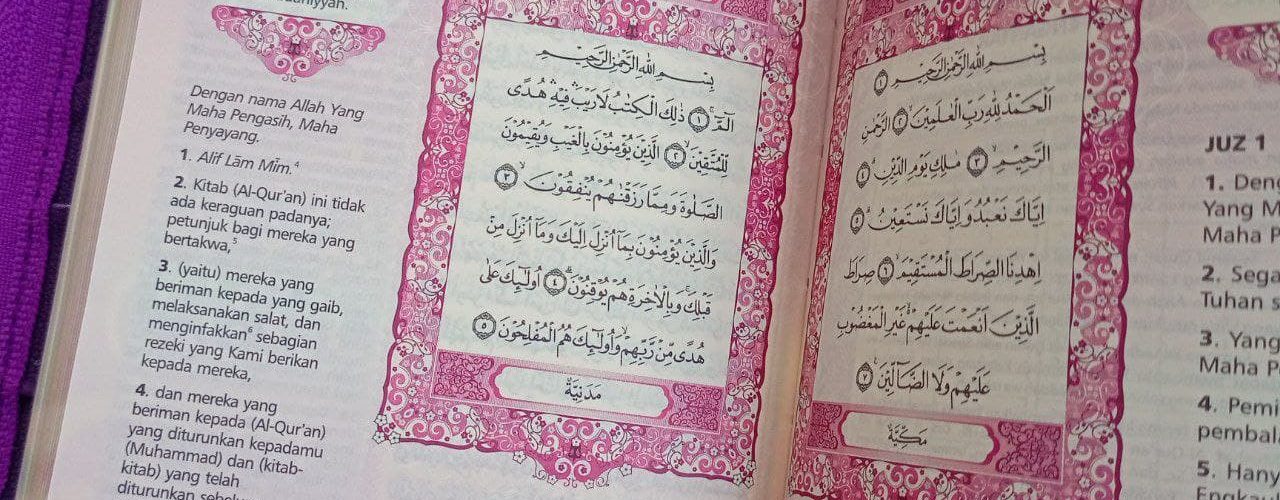 Dengan nama Allah Yang
Maha Pengasih, Maha
Penyayang.
1. Alif Lām Mīm.⁴
2. Kitab (Al-Qur'an) ini tidak
ada keraguan padanya;
petunjuk bagi mereka yang
bertakwa,⁵
3. (yaitu) mereka yang
beriman kepada yang gaib,
melaksanakan salat, dan
menginfakkan⁶ sebagian
rezeki yang Kami berikan
kepada mereka,
4. dan mereka yang
beriman kepada (Al-Qur'an)
yang diturunkan kepadamu
(Muhammad) dan (kitab-
kitab) yang telah
بِسْمِ اللّٰهِ الرَّحْمٰنِ الرَّحِيْمِ
الۤمّۤ ۚ ١ ذٰلِكَ الْكِتٰبُ لَا رَيْبَ ۛ فِيْهِ ۛ هُدًى
لِّلْمُتَّقِيْنَۙ ٢ الَّذِيْنَ يُؤْمِنُوْنَ بِالْغَيْبِ وَيُقِيْمُوْنَ
الصَّلٰوةَ وَمِمَّا رَزَقْنٰهُمْ يُنْفِقُوْنَ ۙ ٣
وَالَّذِيْنَ يُؤْمِنُوْنَ بِمَآ اُنْزِلَ اِلَيْكَ وَمَآ اُنْزِلَ مِنْ
قَبْلِكَ ۚ وَبِالْاٰخِرَةِ هُمْ يُوْقِنُوْنَۗ ٤ اُولٰۤىِٕكَ عَلٰى
هُدًى مِّنْ رَّبِّهِمْ ۙ وَاُولٰۤىِٕكَ هُمُ الْمُفْلِحُوْنَ ٥
مَدَنِيَّةٌ
بِسْمِ اللّٰهِ الرَّحْمٰنِ الرَّحِيْمِ ١
اَلْحَمْدُ لِلّٰهِ رَبِّ الْعٰلَمِيْنَۙ ٢ الرَّحْمٰنِ
الرَّحِيْمِۙ ٣ مٰلِكِ يَوْمِ الدِّيْنِۗ ٤
اِيَّاكَ نَعْبُدُ وَاِيَّاكَ نَسْتَعِيْنُۗ ٥
اِهْدِنَا الصِّرَاطَ الْمُسْتَقِيْمَ ۙ ٦ صِرَاطَ
الَّذِيْنَ اَنْعَمْتَ عَلَيْهِمْ ەۙ غَيْرِ الْمَغْضُوْبِ
عَلَيْهِمْ وَلَا الضَّاۤلِّيْنَ ٧
مَكِّيَّةٌ
JUZ 1
1.
Yang
Maha
2.
Tuhan
3. Yang
Maha
4.
5. Hanya